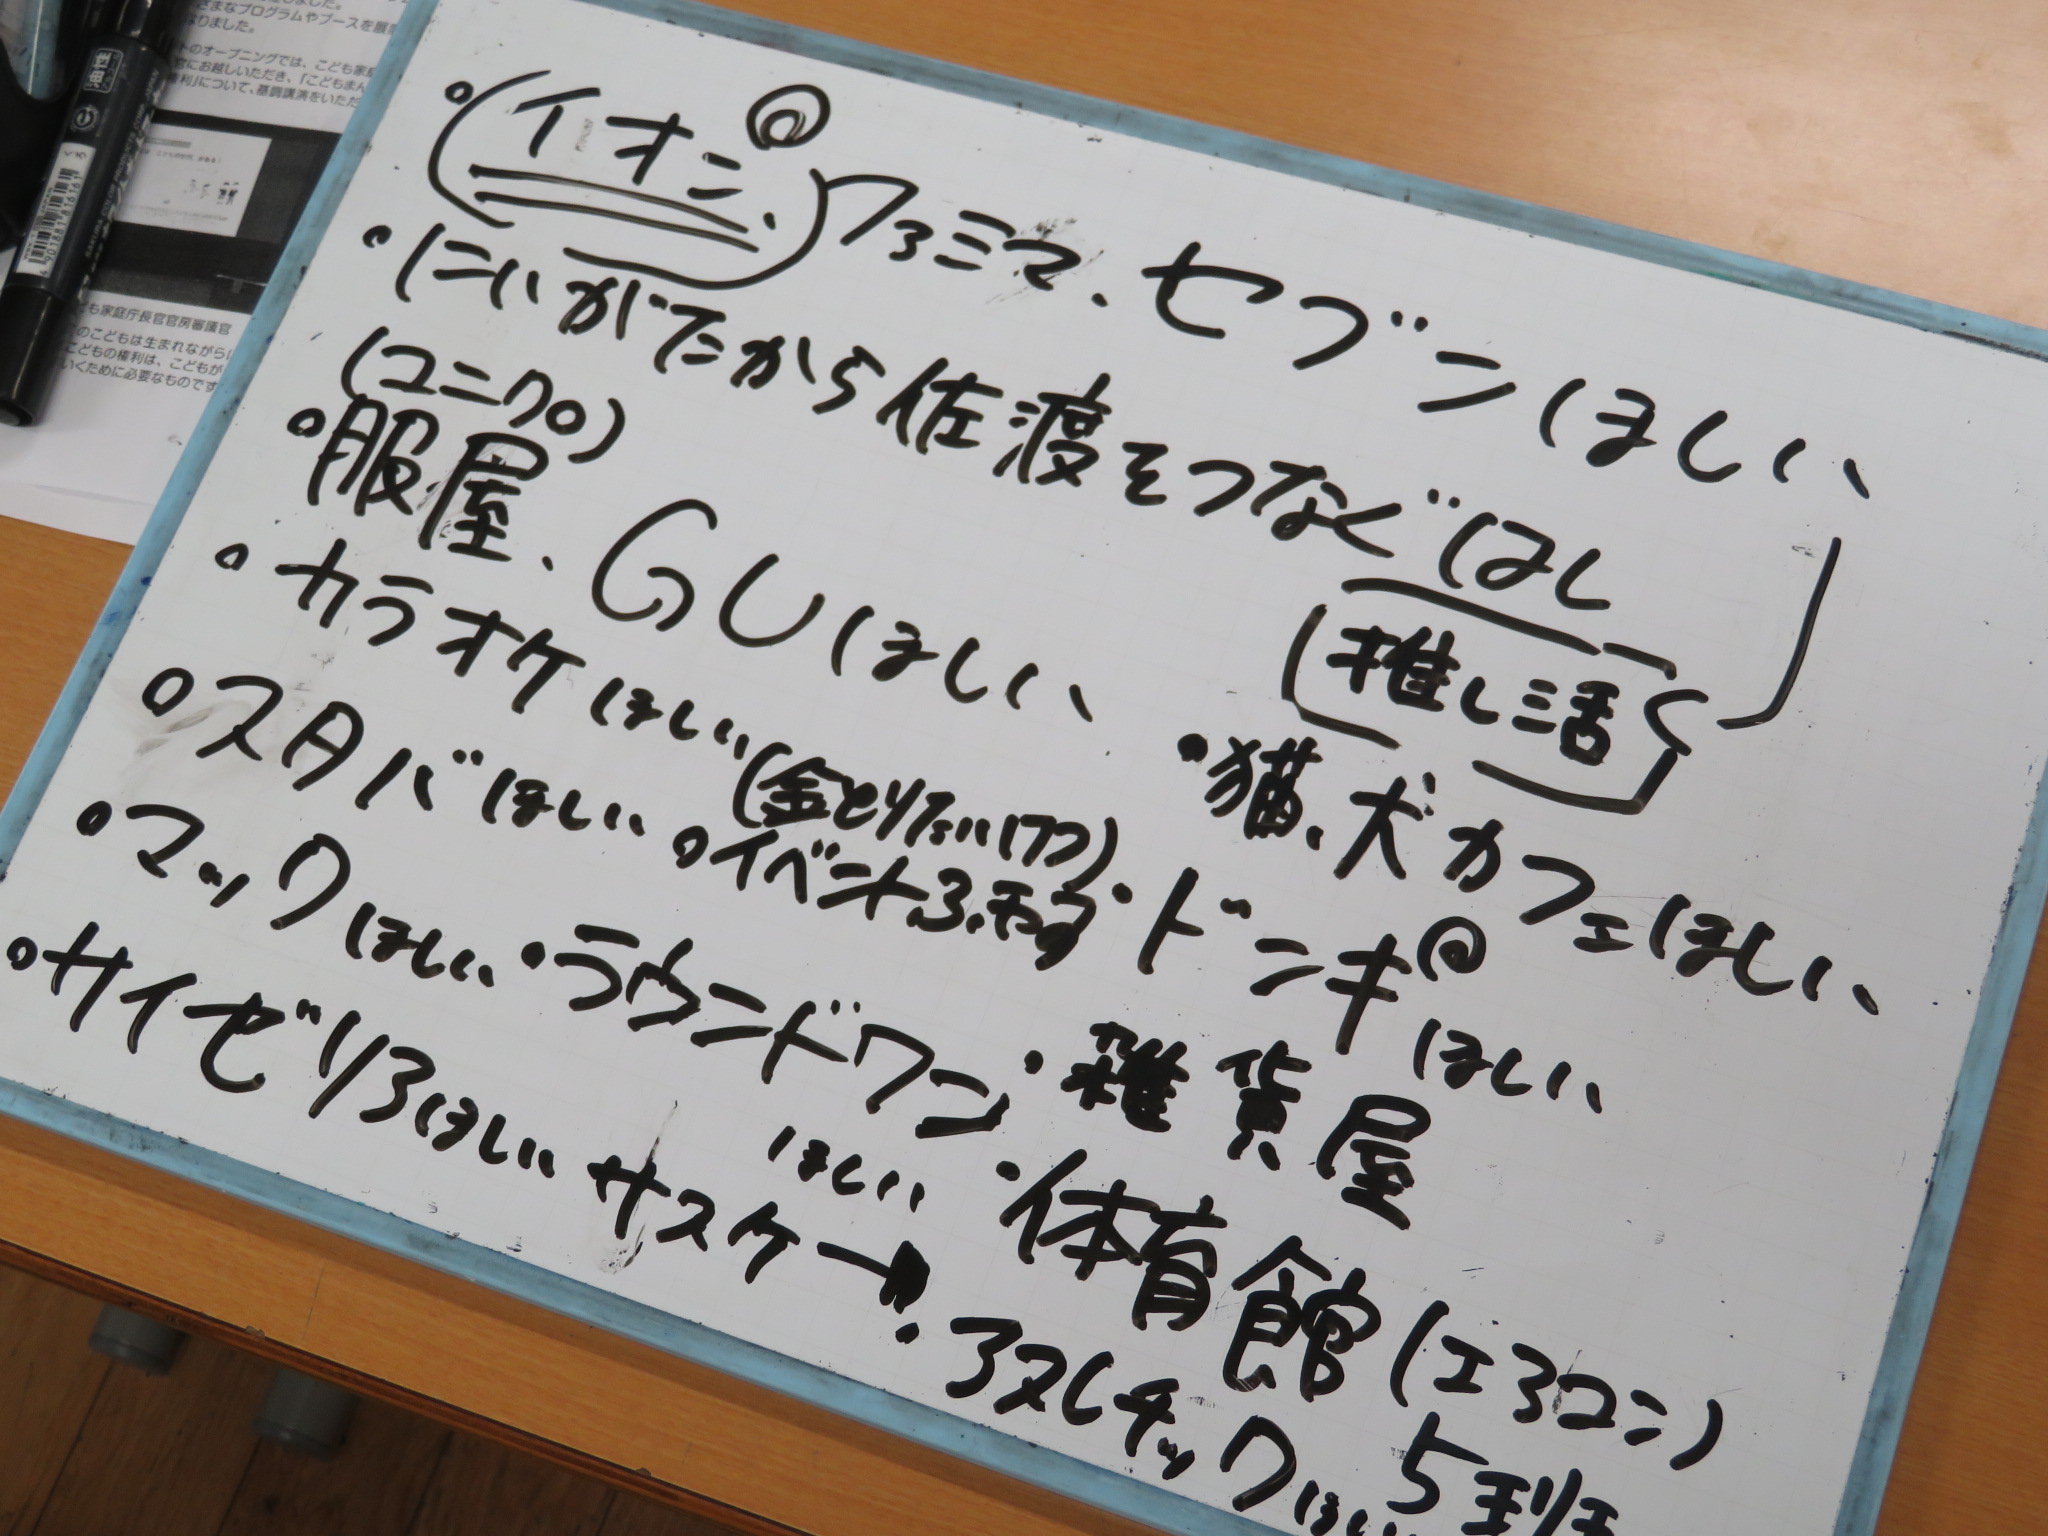 ざまなプログラムやブースを展
なりました。
トのオープニングでは、こども家庭
官にお越しいただき、「こどもまん
権利」について、基調講演をいただ
油性
4 901881 816161
くろ
ども家庭庁長官官房審議官
のこどもは生まれながらに
こどもの権利は、こどもが
いくために必要なものです
◦(イオン、)ファミマ、セブンほしい
◦にいがたから佐渡をつなぐはし
(推し活)
(ユニクロ)
◦服屋、GUほしい
◦カラオケほしい(金とりたいけつ)
・猫、犬カフェほしい
◦スタバほしい
◦イベントふやす
・ドンキほしい
◦マックほしい
・ラウンドワンほしい
・雑貨屋
◦サイゼリアほしい
サスケ
・体育館(エアコン)
・アスレチックほしい
5班